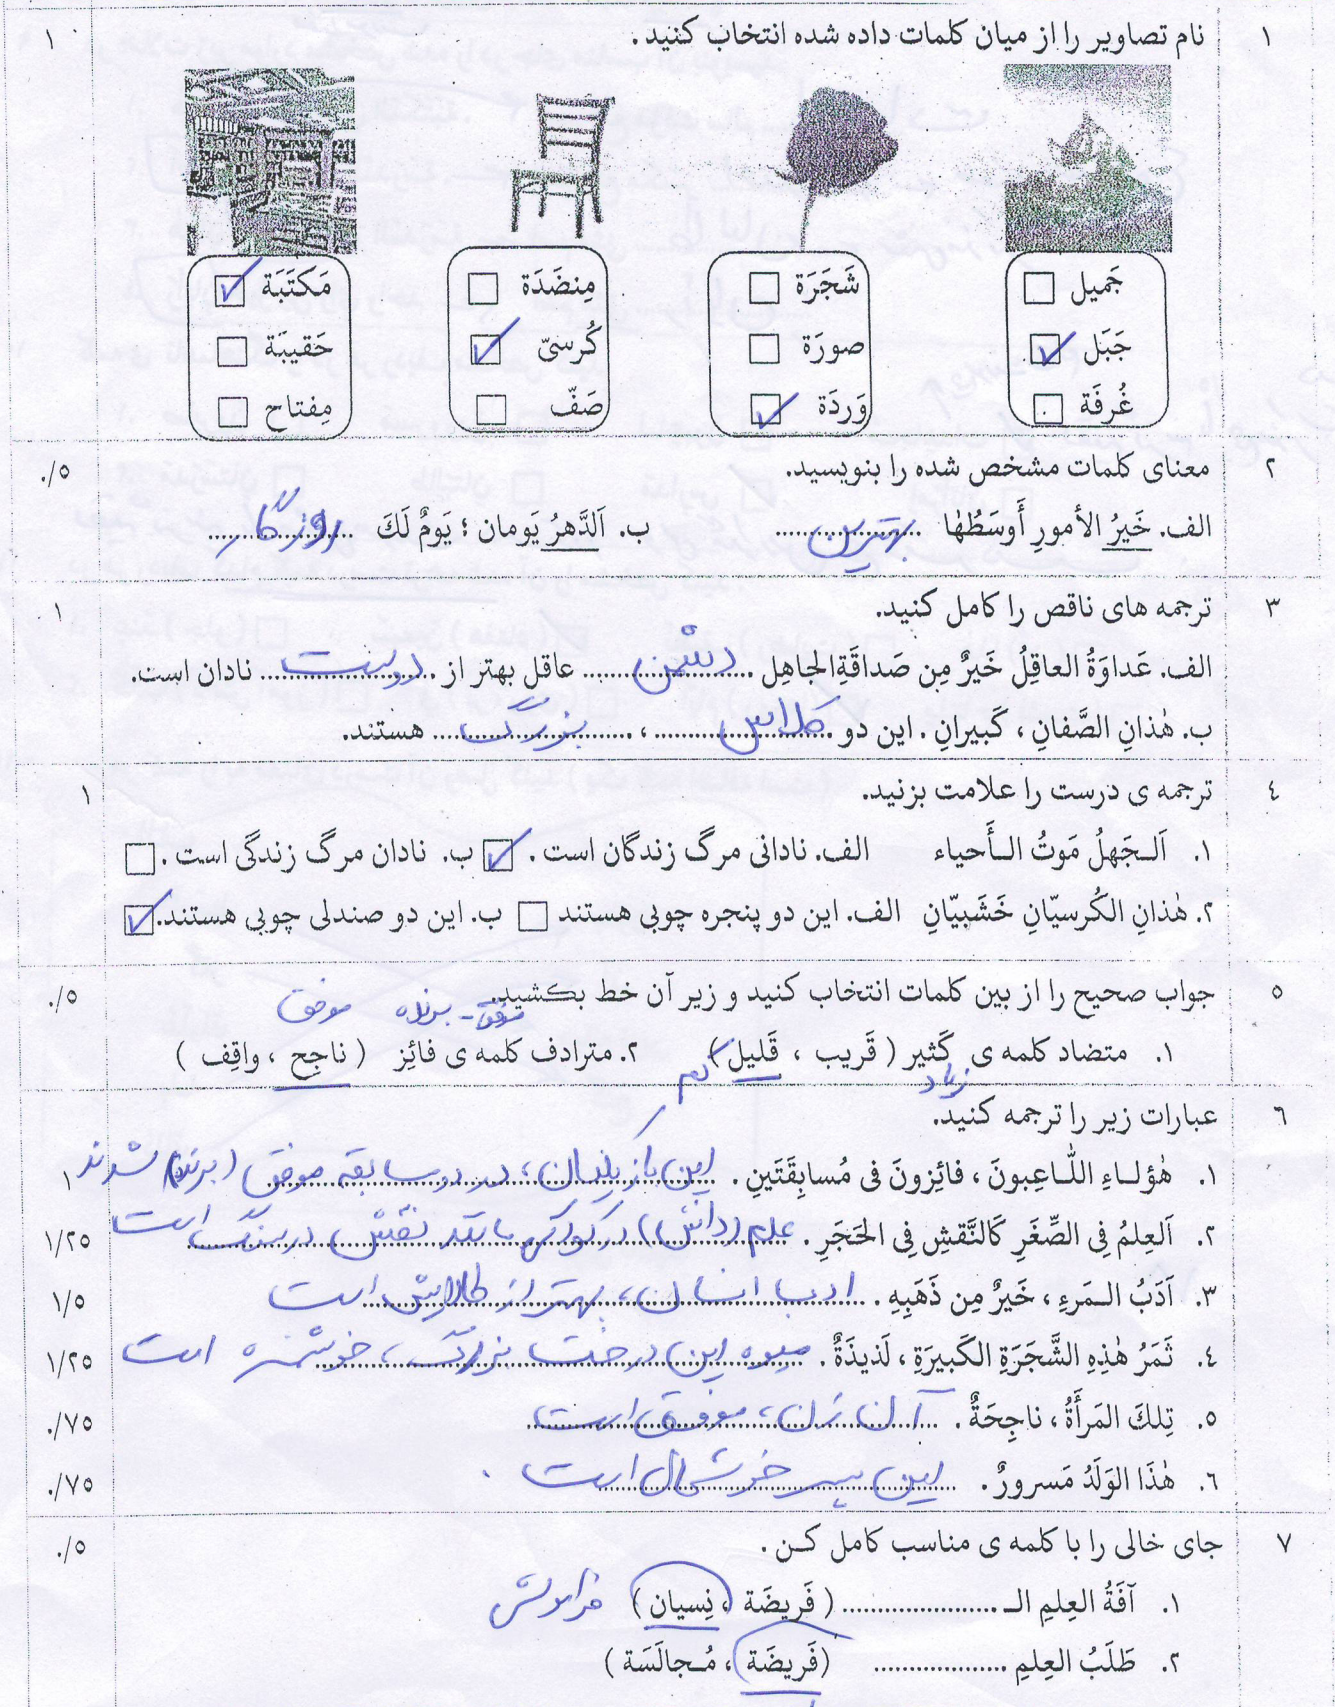 ۱ نام تصاویر را از میان کلمات داده شده انتخاب کنید. ۱
جَمیل □ شَجَرَة □ مِنضَدَة □ مَکتَبَة ☑
جَبَل ☑ صورَة □ کُرسیّ ☑ حَقیبَة □
غُرفَة □ وَردَة ☑ صَفّ □ مِفتاح □
۲ معنای کلمات مشخص شده را بنویسید. ۰/۵
الف. خَیرُ الأمورِ أَوسَطُها بهترین ب. اَلدَّهرُ یَومان ؛ یَومٌ لَكَ روزگار
۳ ترجمه های ناقص را کامل کنید. ۱
الف. عَداوَةُ العاقِلُ خَیرٌ مِن صَداقَةِالجاهِل دشمن عاقل بهتر از دوست نادان است.
ب. هٰذانِ الصَّفانِ ، کَبیرانِ . این دو کلاس ، بزرگ هستند.
٤ ترجمه ی درست را علامت بزنید. ۱
۱. اَلـجَهلُ مَوتُ الـأَحیاء الف. نادانی مرگ زندگان است . ☑ ب. نادان مرگ زندگی است . □
۲. هٰذانِ الکُرسیّانِ خَشَبیّانِ الف. این دو پنجره چوبی هستند □ ب. این دو صندلی چوبی هستند. ☑
٥ جواب صحیح را از بین کلمات انتخاب کنید و زیر آن خط بکشید. ۰/۵
موفق - برنده موفق
۱. متضاد کلمه ی کَثیر ( قَریب ، قَلیل ) ۲. مترادف کلمه ی فائِز ( ناجِح ، واقِف )
زیاد کم
٦ عبارات زیر را ترجمه کنید.
۱. هٰؤلـاءِ اللّـاعِبونَ ، فائِزونَ فی مُسابِقَتَینِ . این بازیکنان، در دو مسابقه موفق (برنده) شدند ۱
۲. اَلعِلمُ فِی الصِّغَرِ کَالنَّقشِ فِی الحَجَرِ . علم (دانش) در کودکی مانند نقش در سنگ است ۱/۲۵
۳. اَدَبُ الـمَرءِ ، خَیرٌ مِن ذَهَبِهِ . ادب انسان، بهتر از طلایش است ۱/۵
٤. ثَمَرُ هٰذِهِ الشَّجَرَةِ الکَبیرَةِ ، لَذیذَةٌ . میوه این درخت بزرگ، خوشمزه است ۱/۲۵
٥. تِلكَ المَرأَةُ ، ناجِحَةٌ . آن زن، موفق است ۰/۷۵
٦. هٰذَا الوَلَدُ مَسرورٌ . این پسر خوشحال است . ۰/۷۵
۷ جای خالی را با کلمه ی مناسب کامل کـن . ۰/۵
۱. آفَةُ العِلمِ الـ .................... ( فَریضَة ، نِسیان ) فراموشی
۲. طَلَبُ العِلمِ .................. (فَریضَة ، مُـجالَسَة )